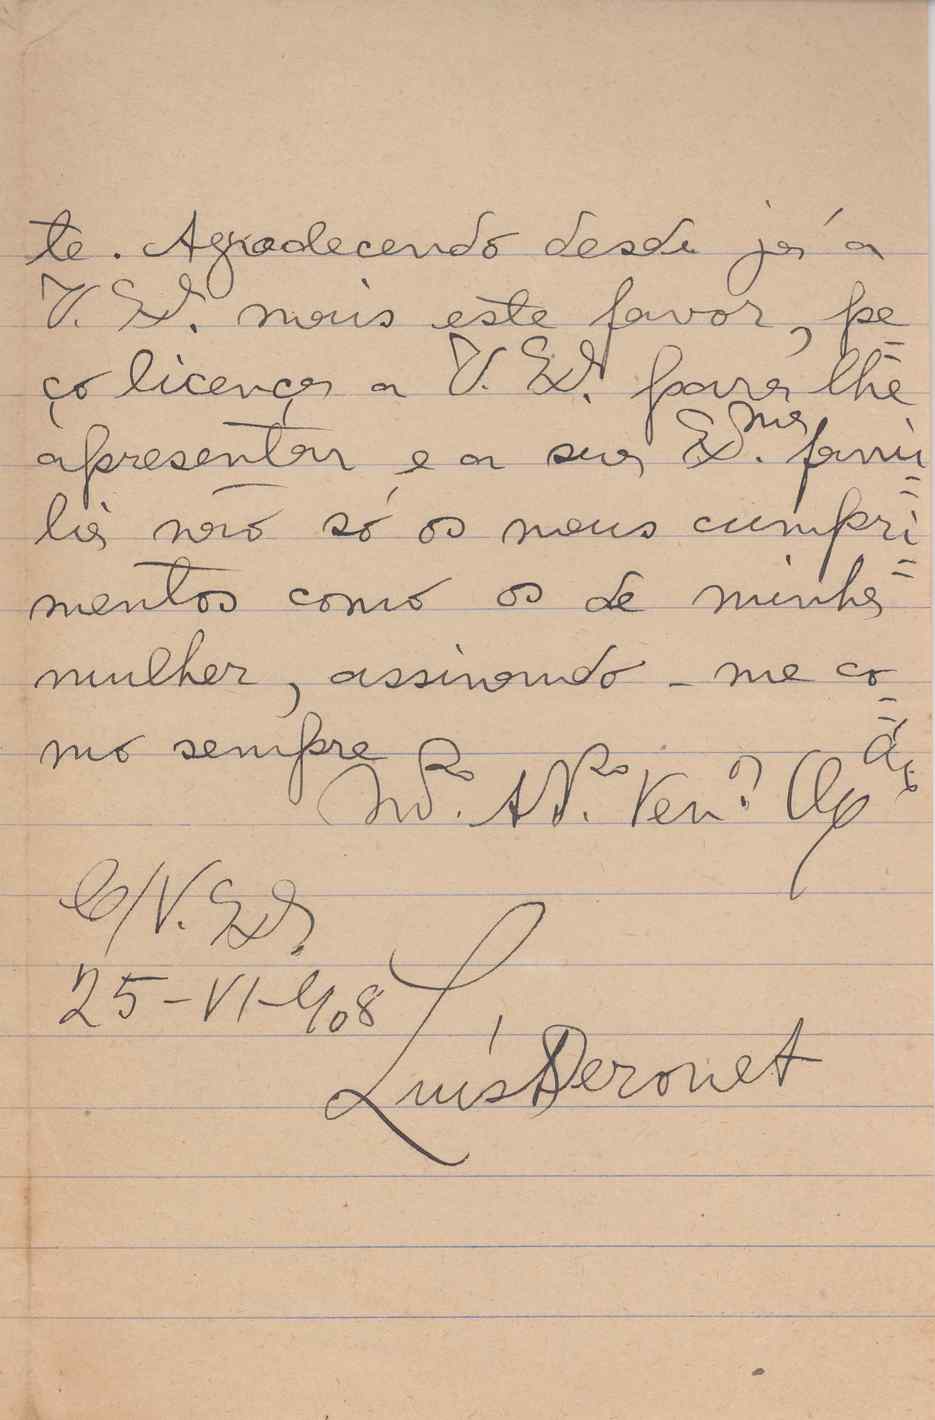 te. Agradecendo desde já a
V. Ex.ª mais este favor, pe=
ço licença a V. Ex.ª para lhe
apresentar e a sua Ex.ma fami=
lia não só os meus cumpri=
mentos como os de minha
mulher, assinando-me co=
mo sempre
Ven.
C/V. Ex.ª
25-VI-908
Luís Derouet